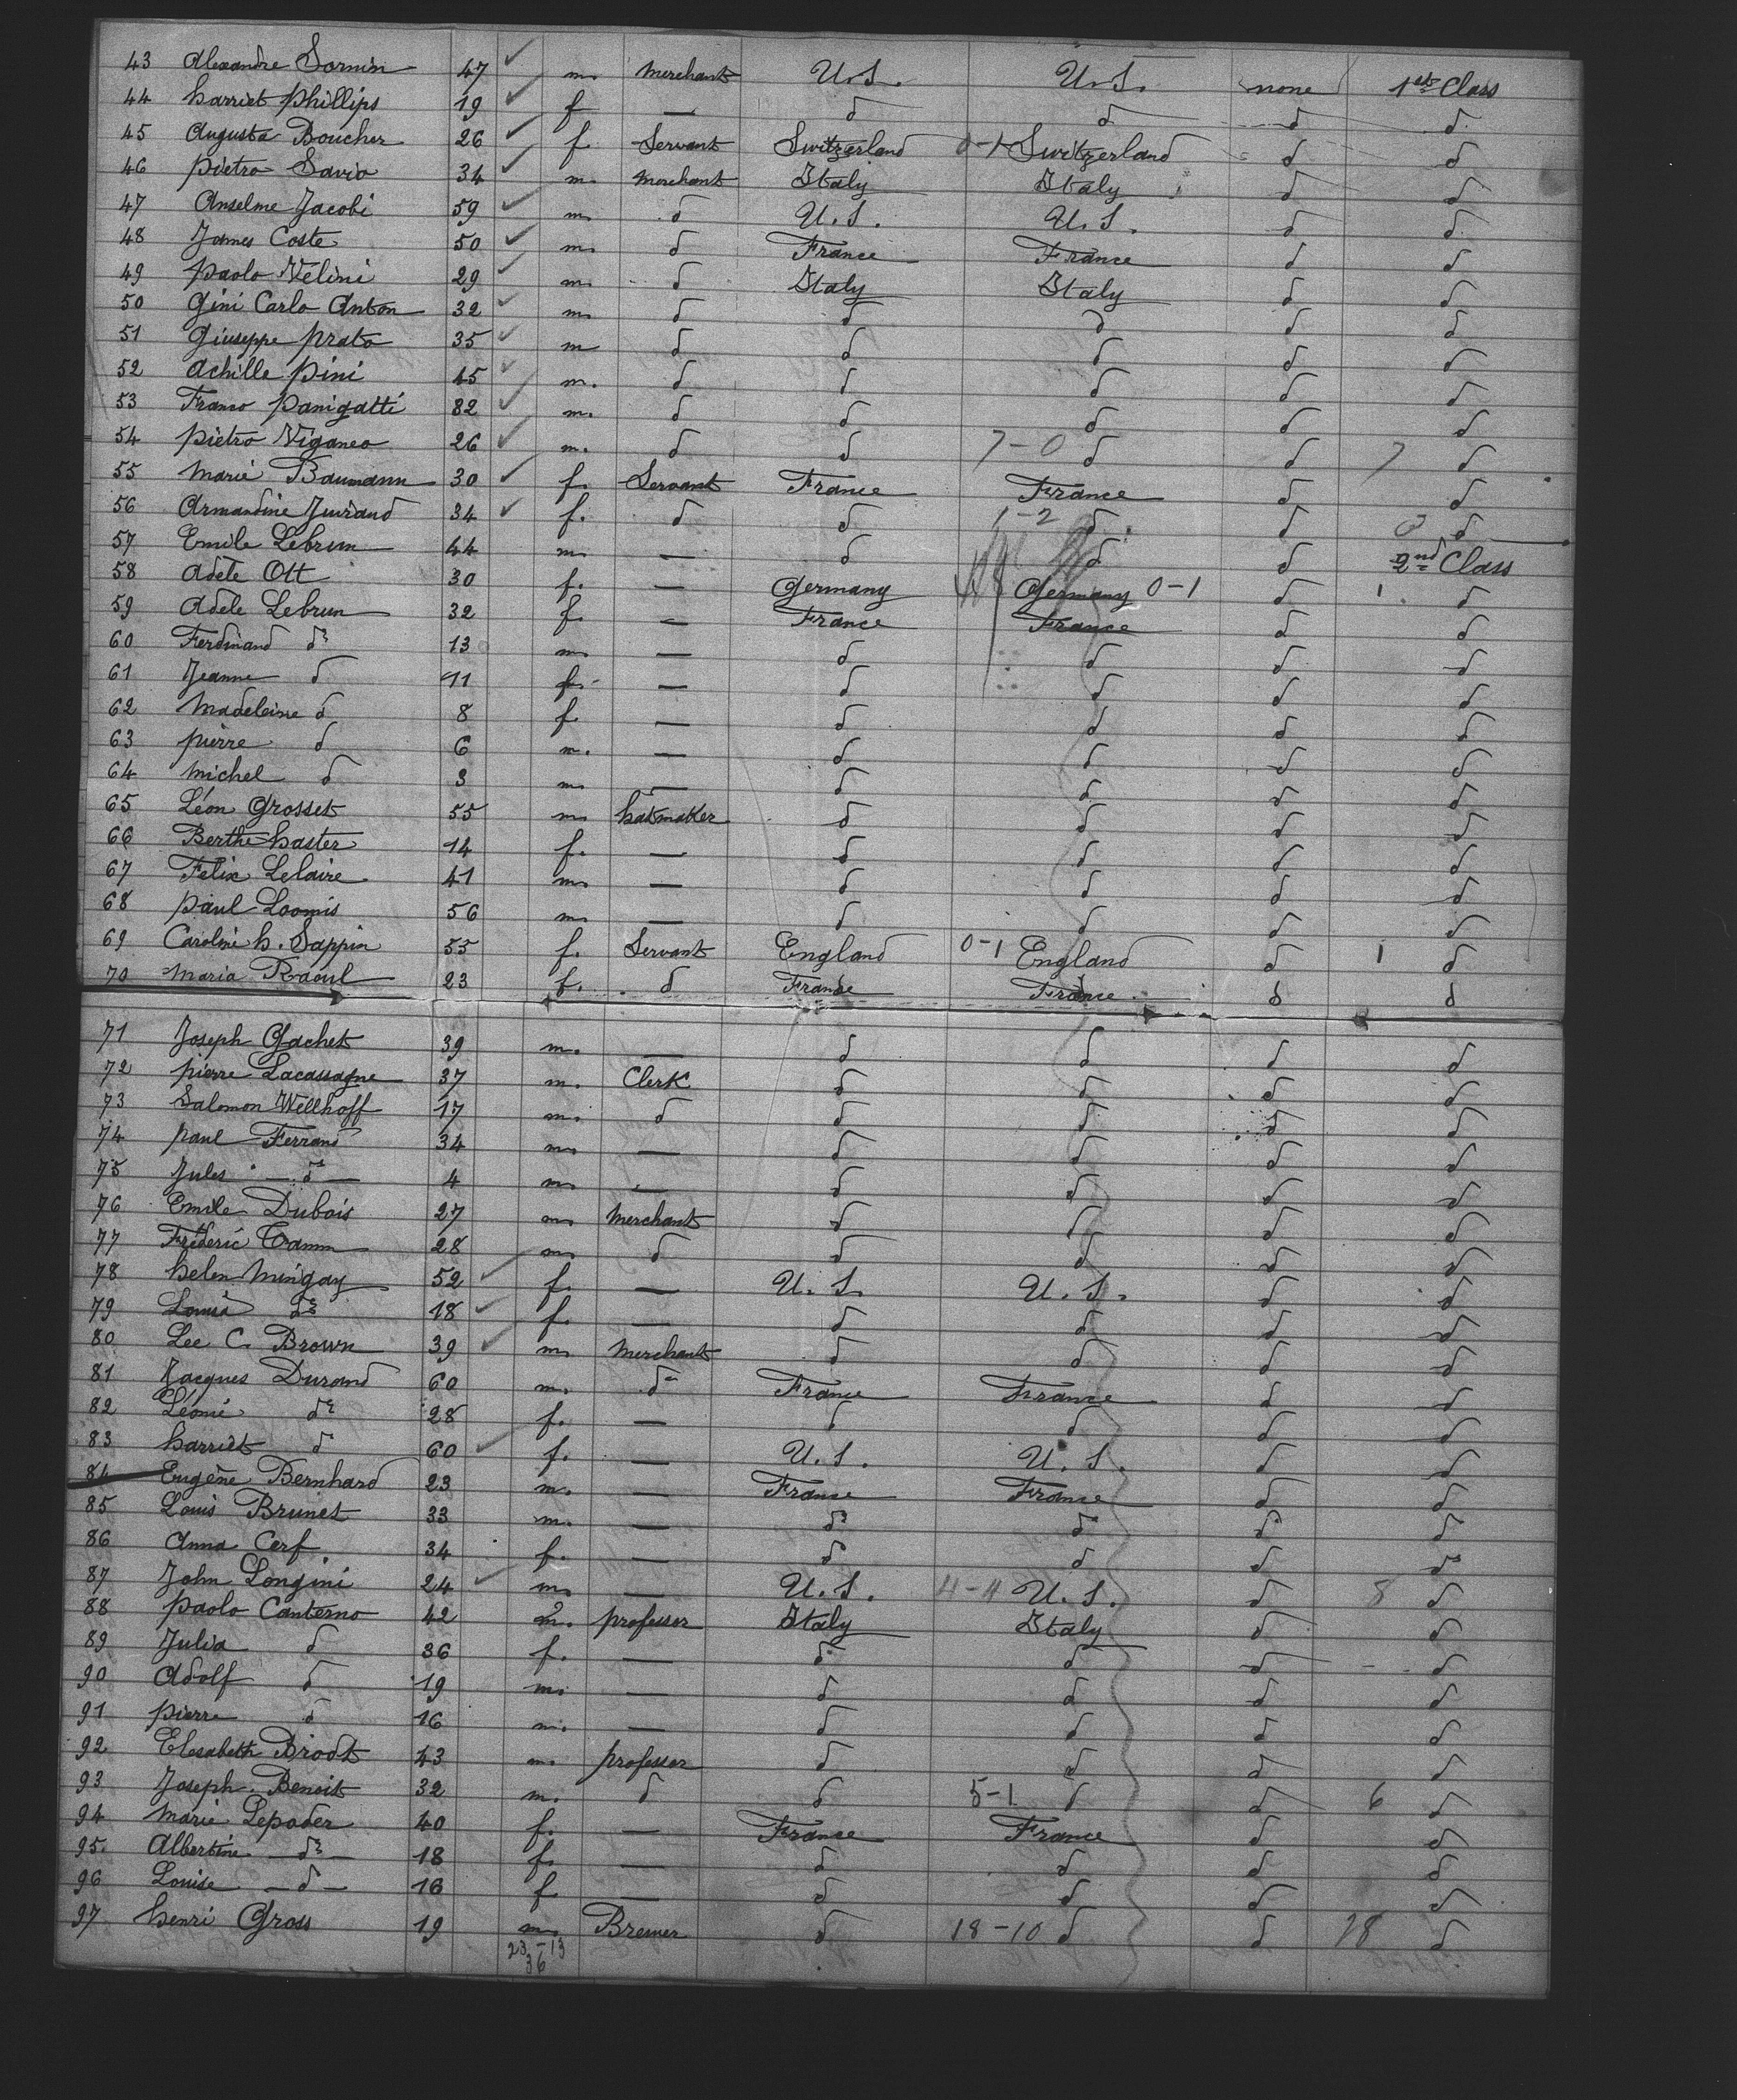 43 Alexandre Sornin 47 ✓ m. merchant U.S. U.S. none 1st Class
44 harriet phillips 19 ✓ f — d d d d
45 Augusta Boucher 26 ✓ f Servant Switzerland 0-1 Switzerland d d
46 pietro Savio 34 ✓ m. merchant Italy Italy d d
47 Anselme Jacobi 59 ✓ m. d U.S. U.S. d d
48 James Coste 50 ✓ m. d France France d d
49 paolo Velini 29 ✓ m. d Italy Italy d d
50 Gini Carlo Anton 32 ✓ m. d d d d d
51 Giuseppe prato 35 ✓ m d d d d d
52 Achille pini 45 ✓ m. d d d d d
53 Franco panigatti 82 ✓ m. d d d d d
54 pietro Viganeo 26 ✓ m. d d 7-0 d d 7 d
55 Marie Baumann 30 ✓ f. Servant France France d d
56 Armandine 34 ✓ f. d d 1-2 d d d
57 Emile Lebrun 44 m. — d d d 2nd Class
58 Adele Ott 30 f. — Germany Germany 0-1 d 1 d
59 Adele Lebrun 32 f. — France France d d
60 Ferdinand do 13 m. — d d d d
61 Jeanne d 11 f. — d d d d
62 Madeleine d 8 f. — d d d d
63 pierre d 6 m. — d d d d
64 Michel d 3 m. — d d d d
65 Léon Grosset 55 m. hatmaker d d d d
66 Berthe haster 14 f. — d d d d
67 Felix Lelaire 41 m. — d d d d
68 paul Loomis 56 m. — d d d d
69 Caroline h. Sappin 55 f. Servant England 0-1 England d 1 d
70 Maria Raoul 23 f. d France France d d
71 Joseph Gachet 39 m. — d d d d
72 pierre Lacassagne 37 m. Clerk d d d d
73 Salomon Wellhoff 17 m. d d d d d
74 paul Ferrand 34 m. — d d d d
75 Jules — do — 4 m. — d d d d
76 Emile Dubois 27 m. merchant d d d d
77 Frederic Tamm 28 m. d d d d d
78 helen Mingay 52 ✓ f. — U.S. U.S. d d
79 Louisa do 18 ✓ f. — d d d d
80 Lee C. Brown 39 ✓ m. merchant d d d d
81 Jacques Durand 60 m. do France France d d
82 Léonie do 28 f. — d d d d
83 harriet d 60 ✓ f. — U.S. U.S. d d
84 Eugène Bernhard 23 m. — France France d d
85 Louis Brunet 33 m. — do do do d
86 Anna Cerf 34 f. — do d d do
87 John Longini 24 ✓ m. — U.S. 4-4 U.S. d 8 d
88 paolo Canterno 42 m. professor Italy Italy d d
89 Julia d 36 f. — d d d d
90 Adolf d 19 m. — d d d d
91 pierre d 16 m. — d d d d
92 Elisabeth Brodt 43 m. professor d d d d
93 Joseph Benoit 32 m. d d 5-1 d d 6 d
94 Marie Lepoder 40 f. — France France d d
95. Albertine — do — 18 f. — d d d d
96 Louise — d — 16 f. — d d d d
97 henri Gross 19 m. Brewer d 18-10 d d 28 d
23-13
36